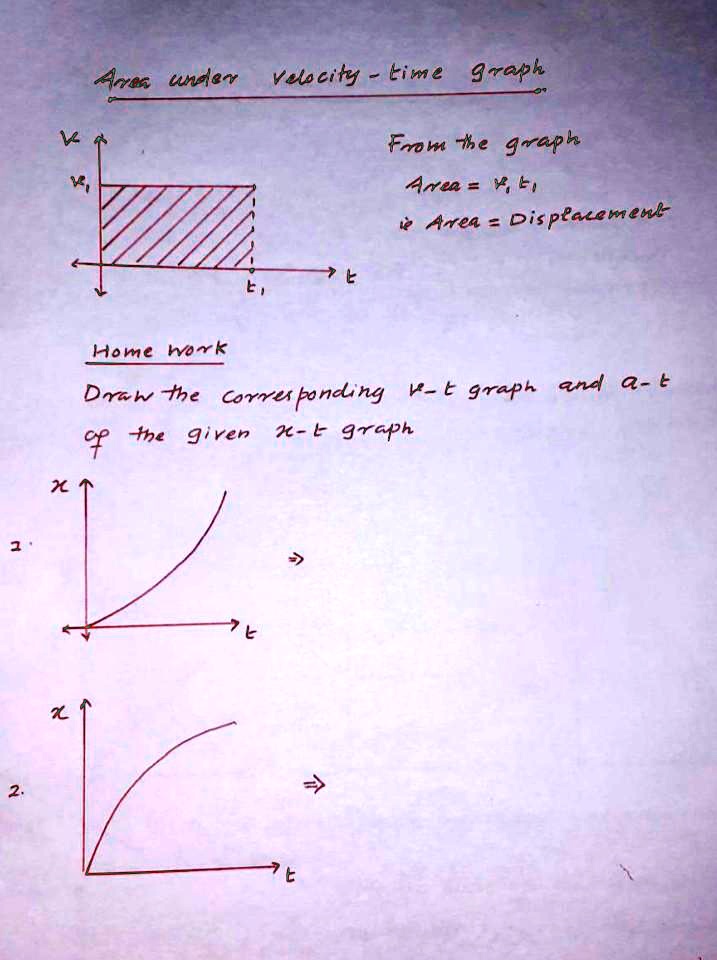 Area under velocity - time graph
v
v₁
t₁
t
From the graph
Area = v₁ t₁
ie Area = Displacement
Home work
Draw the corresponding v-t graph and a-t
of the given x-t graph
x
1.
⇒
t
x
2.
⇒
t